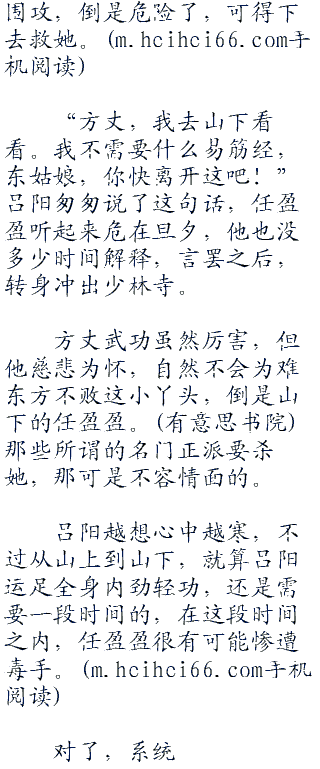 围攻，倒是危险了，可得下
去救她。(m.hcihci66.com手
机阅读)
“方丈，我去山下看
看。我不需要什么易筋经，
东姑娘，你快离开这吧！”
吕阳匆匆说了这句话，任盈
盈听起来危在旦夕，他也没
多少时间解释，言罢之后，
转身冲出少林寺。
方丈武功虽然厉害，但
他慈悲为怀，自然不会为难
东方不败这小丫头，倒是山
下的任盈盈。(有意思书院)
那些所谓的名门正派要杀
她，那可是不容情面的。
吕阳越想心中越寒，不
过从山上到山下，就算吕阳
运足全身内劲轻功，还是需
要一段时间的，在这段时间
之内，任盈盈很有可能惨遭
毒手。(m.hcihci66.com手机
阅读)
对了，系统